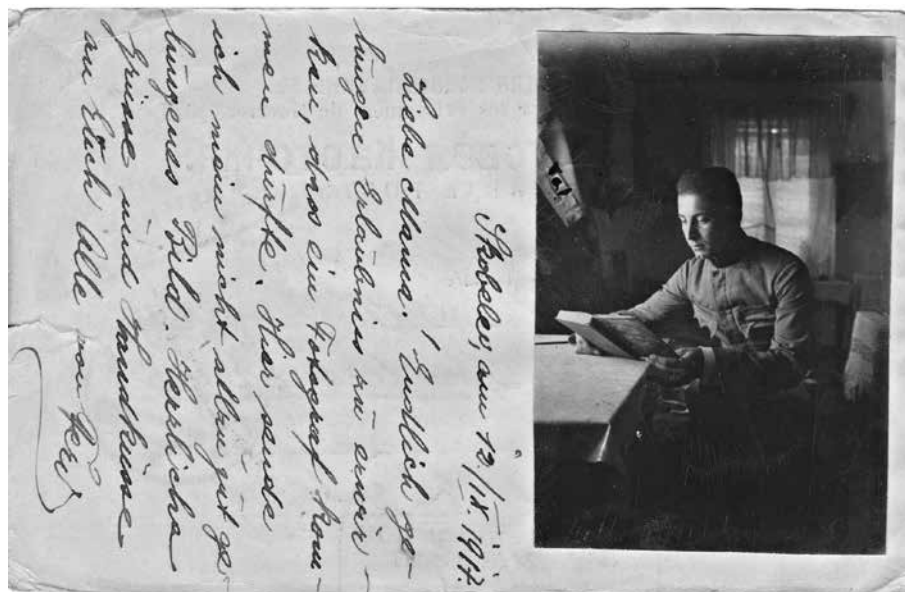 am 12/IX. 1917.
Liebe Mama! Endlich ge-
lungen Erlaubnis zu erwir-
ken, dass ein Fotograf kom-
men durfte. Hier sende
ich mein nicht allzu gut ge-
lungenes Bild. Herzliche
Grüsse und Handküsse
an Euch Alle von